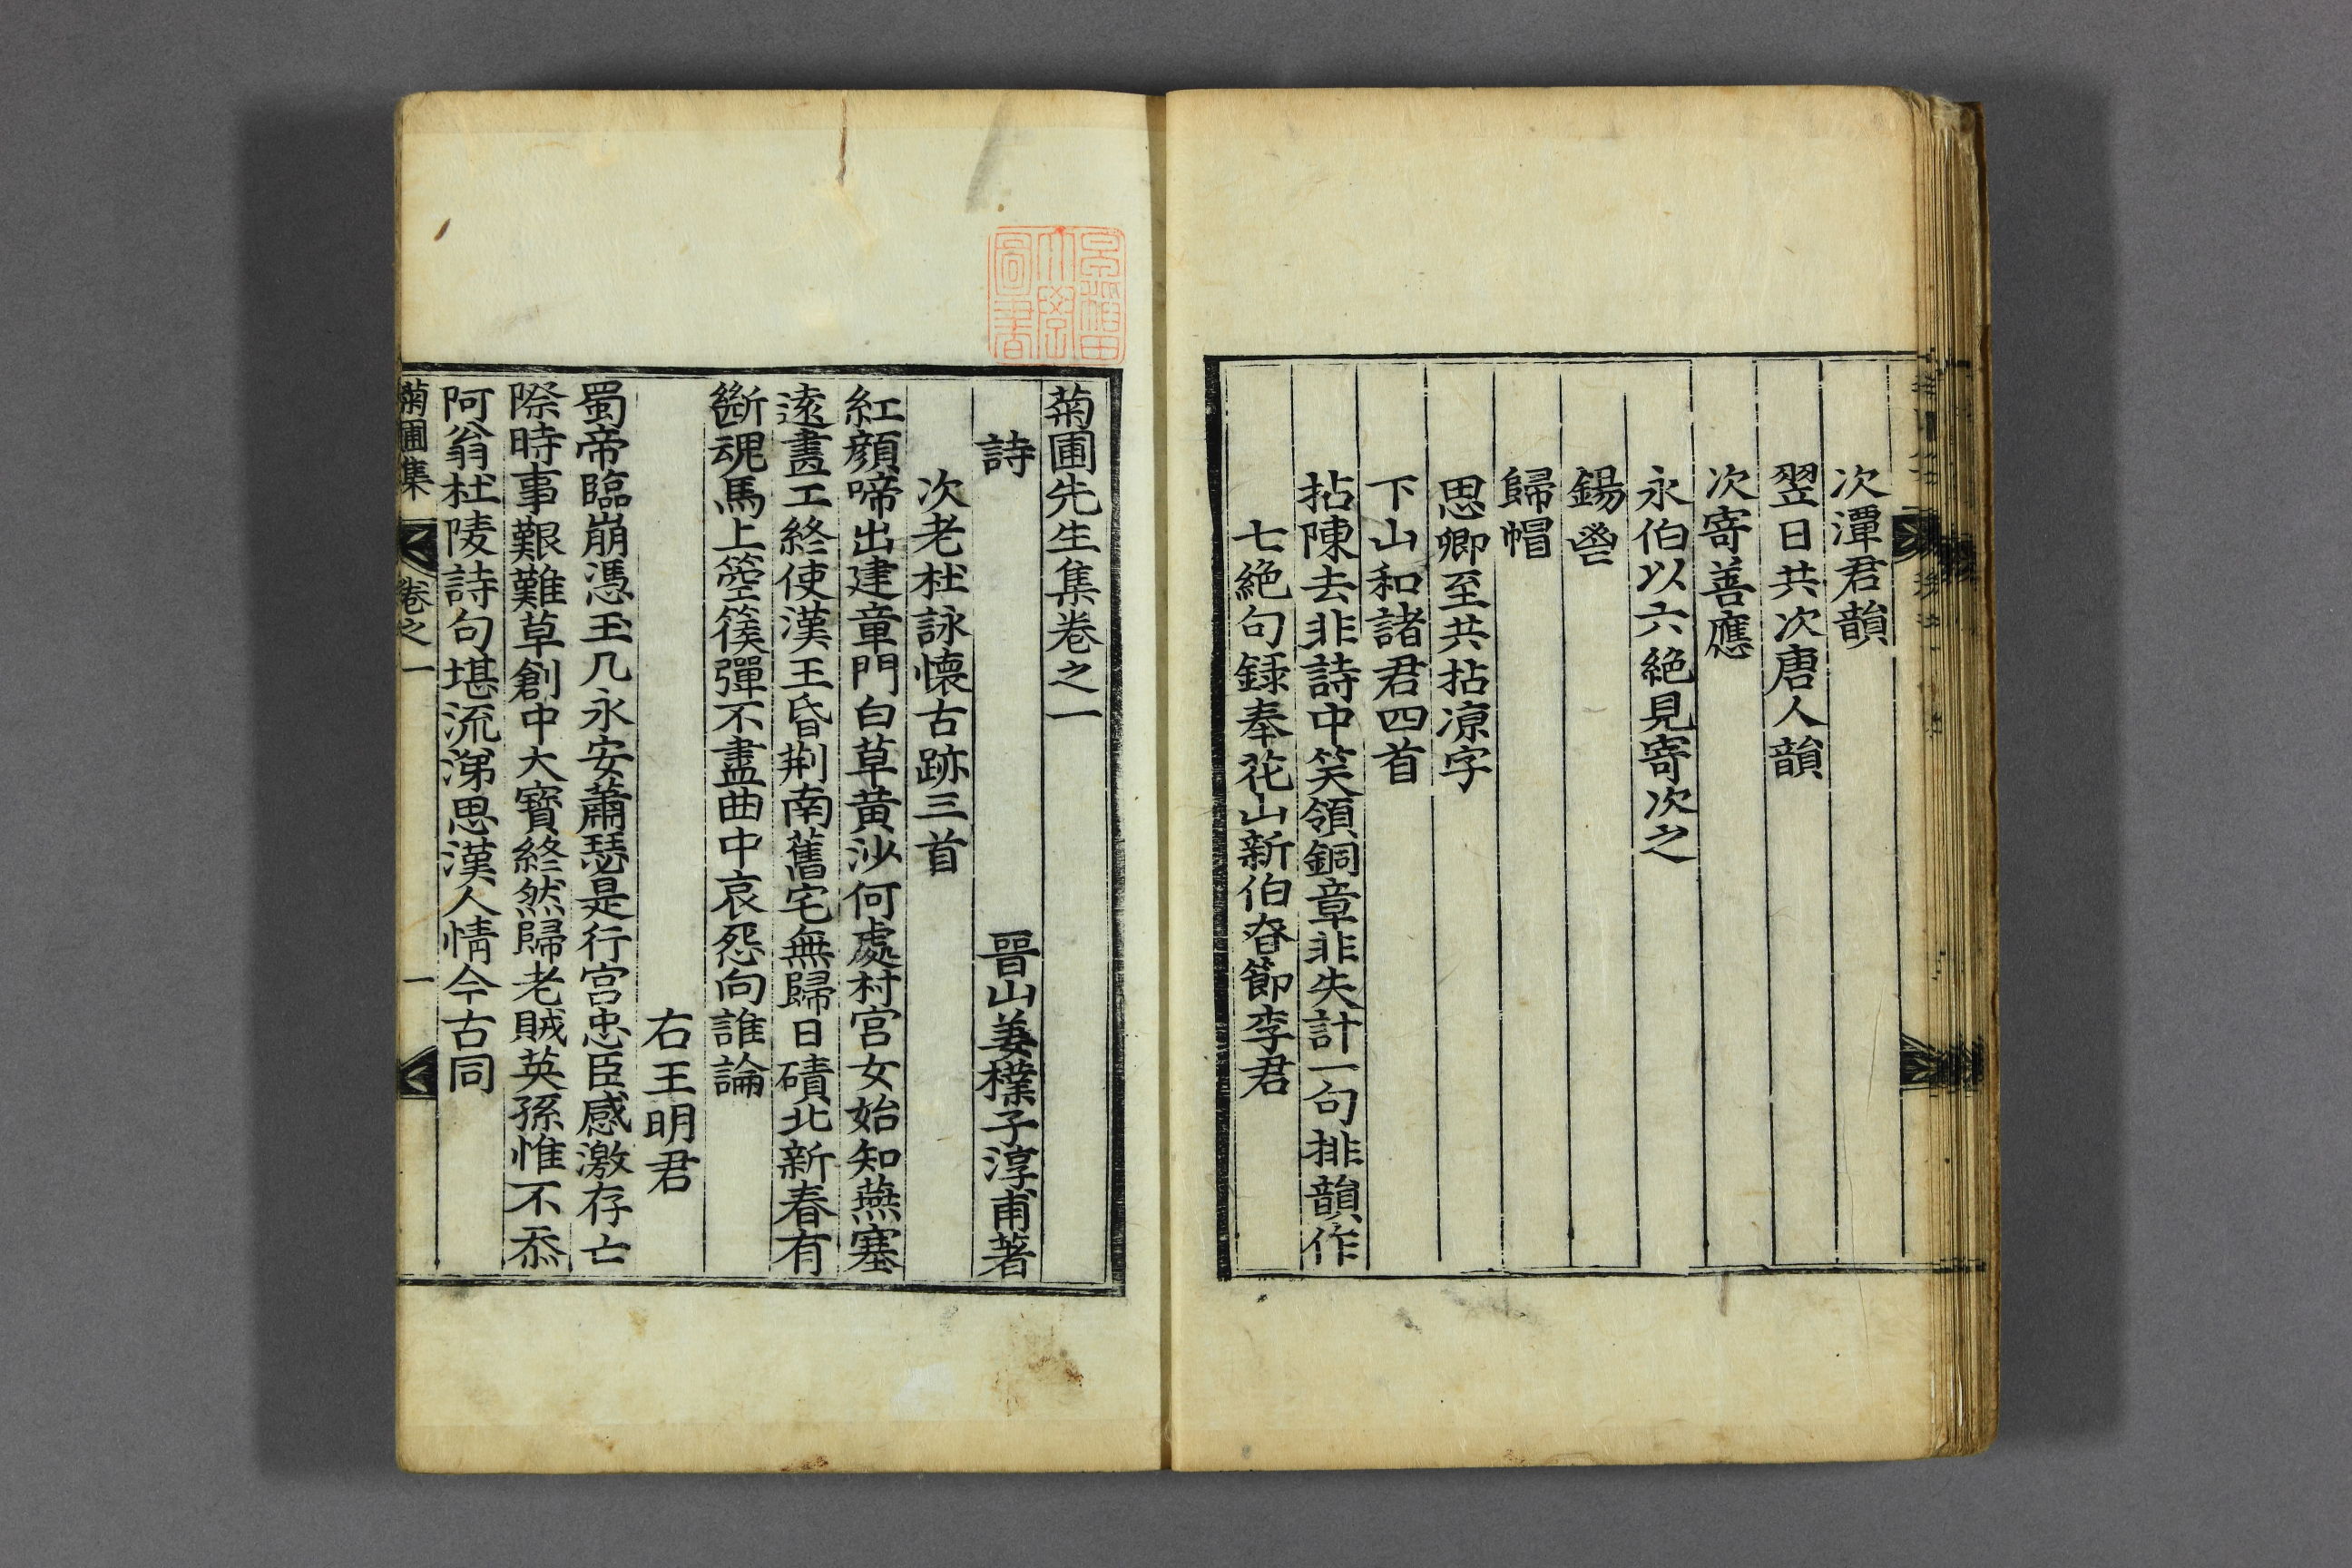 次潭君韻
翌日共次唐人韻
次寄善應
永伯以六絶見寄次之
鍚巹
歸帽
思卿至共拈凉字
下山和諸君四首
拈陳去非詩中笑領銅章非失計一句排韻作
七絶句録奉花山新伯春節李君
菊圃先生集卷之一
詩
晉山姜樸子淳甫著
次老杜詠懷古跡三首
紅顔啼出建章門白草黄沙何處村宫女始知燕塞
遠畫工終使漢王昏荆南舊宅無歸日磧北新春有
斷魂馬上箜篌彈不盡曲中哀怨向誰論
右王明君
蜀帝臨崩憑玉几永安蕭瑟是行宫忠臣感激存亡
際時事艱難草創中大寶終然歸老賊英孫惟不忝
阿翁杜陵詩句堪流涕思漢人情今古同
菊圃集
卷之一
一
早稻田大學圖書